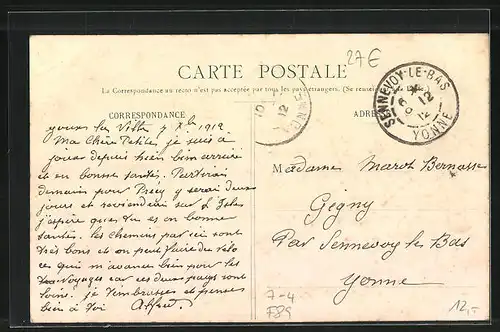 27€
CARTE POSTALE
La Correspondance au recto n'est pas acceptée par tous les pays étrangers. (Se
CORRESPONDANCE
ADRE
SENNEVOY-LE-BAS
6 12
12
YONNE
10
12
YONNE
Ville 7 Xbre 1912
Ma Chère Petite, je suis à
depuis hier bien arrivé
et en bonne santé. Partirai
demain pour y serai deux
jours et reviendrai sur
j'espère que tu es en bonne
santé. les chemins par ici sont
très bons et on peut faire du vélo
ce qui m'avance bien pour les
voyages car ces deux pays sont
loins. je t'embrasse et penses
bien à toi Alfred
Madame Marot Bernasse
Gigny
Par Sennevoy le Bas
Yonne
7-4
F89
12,-